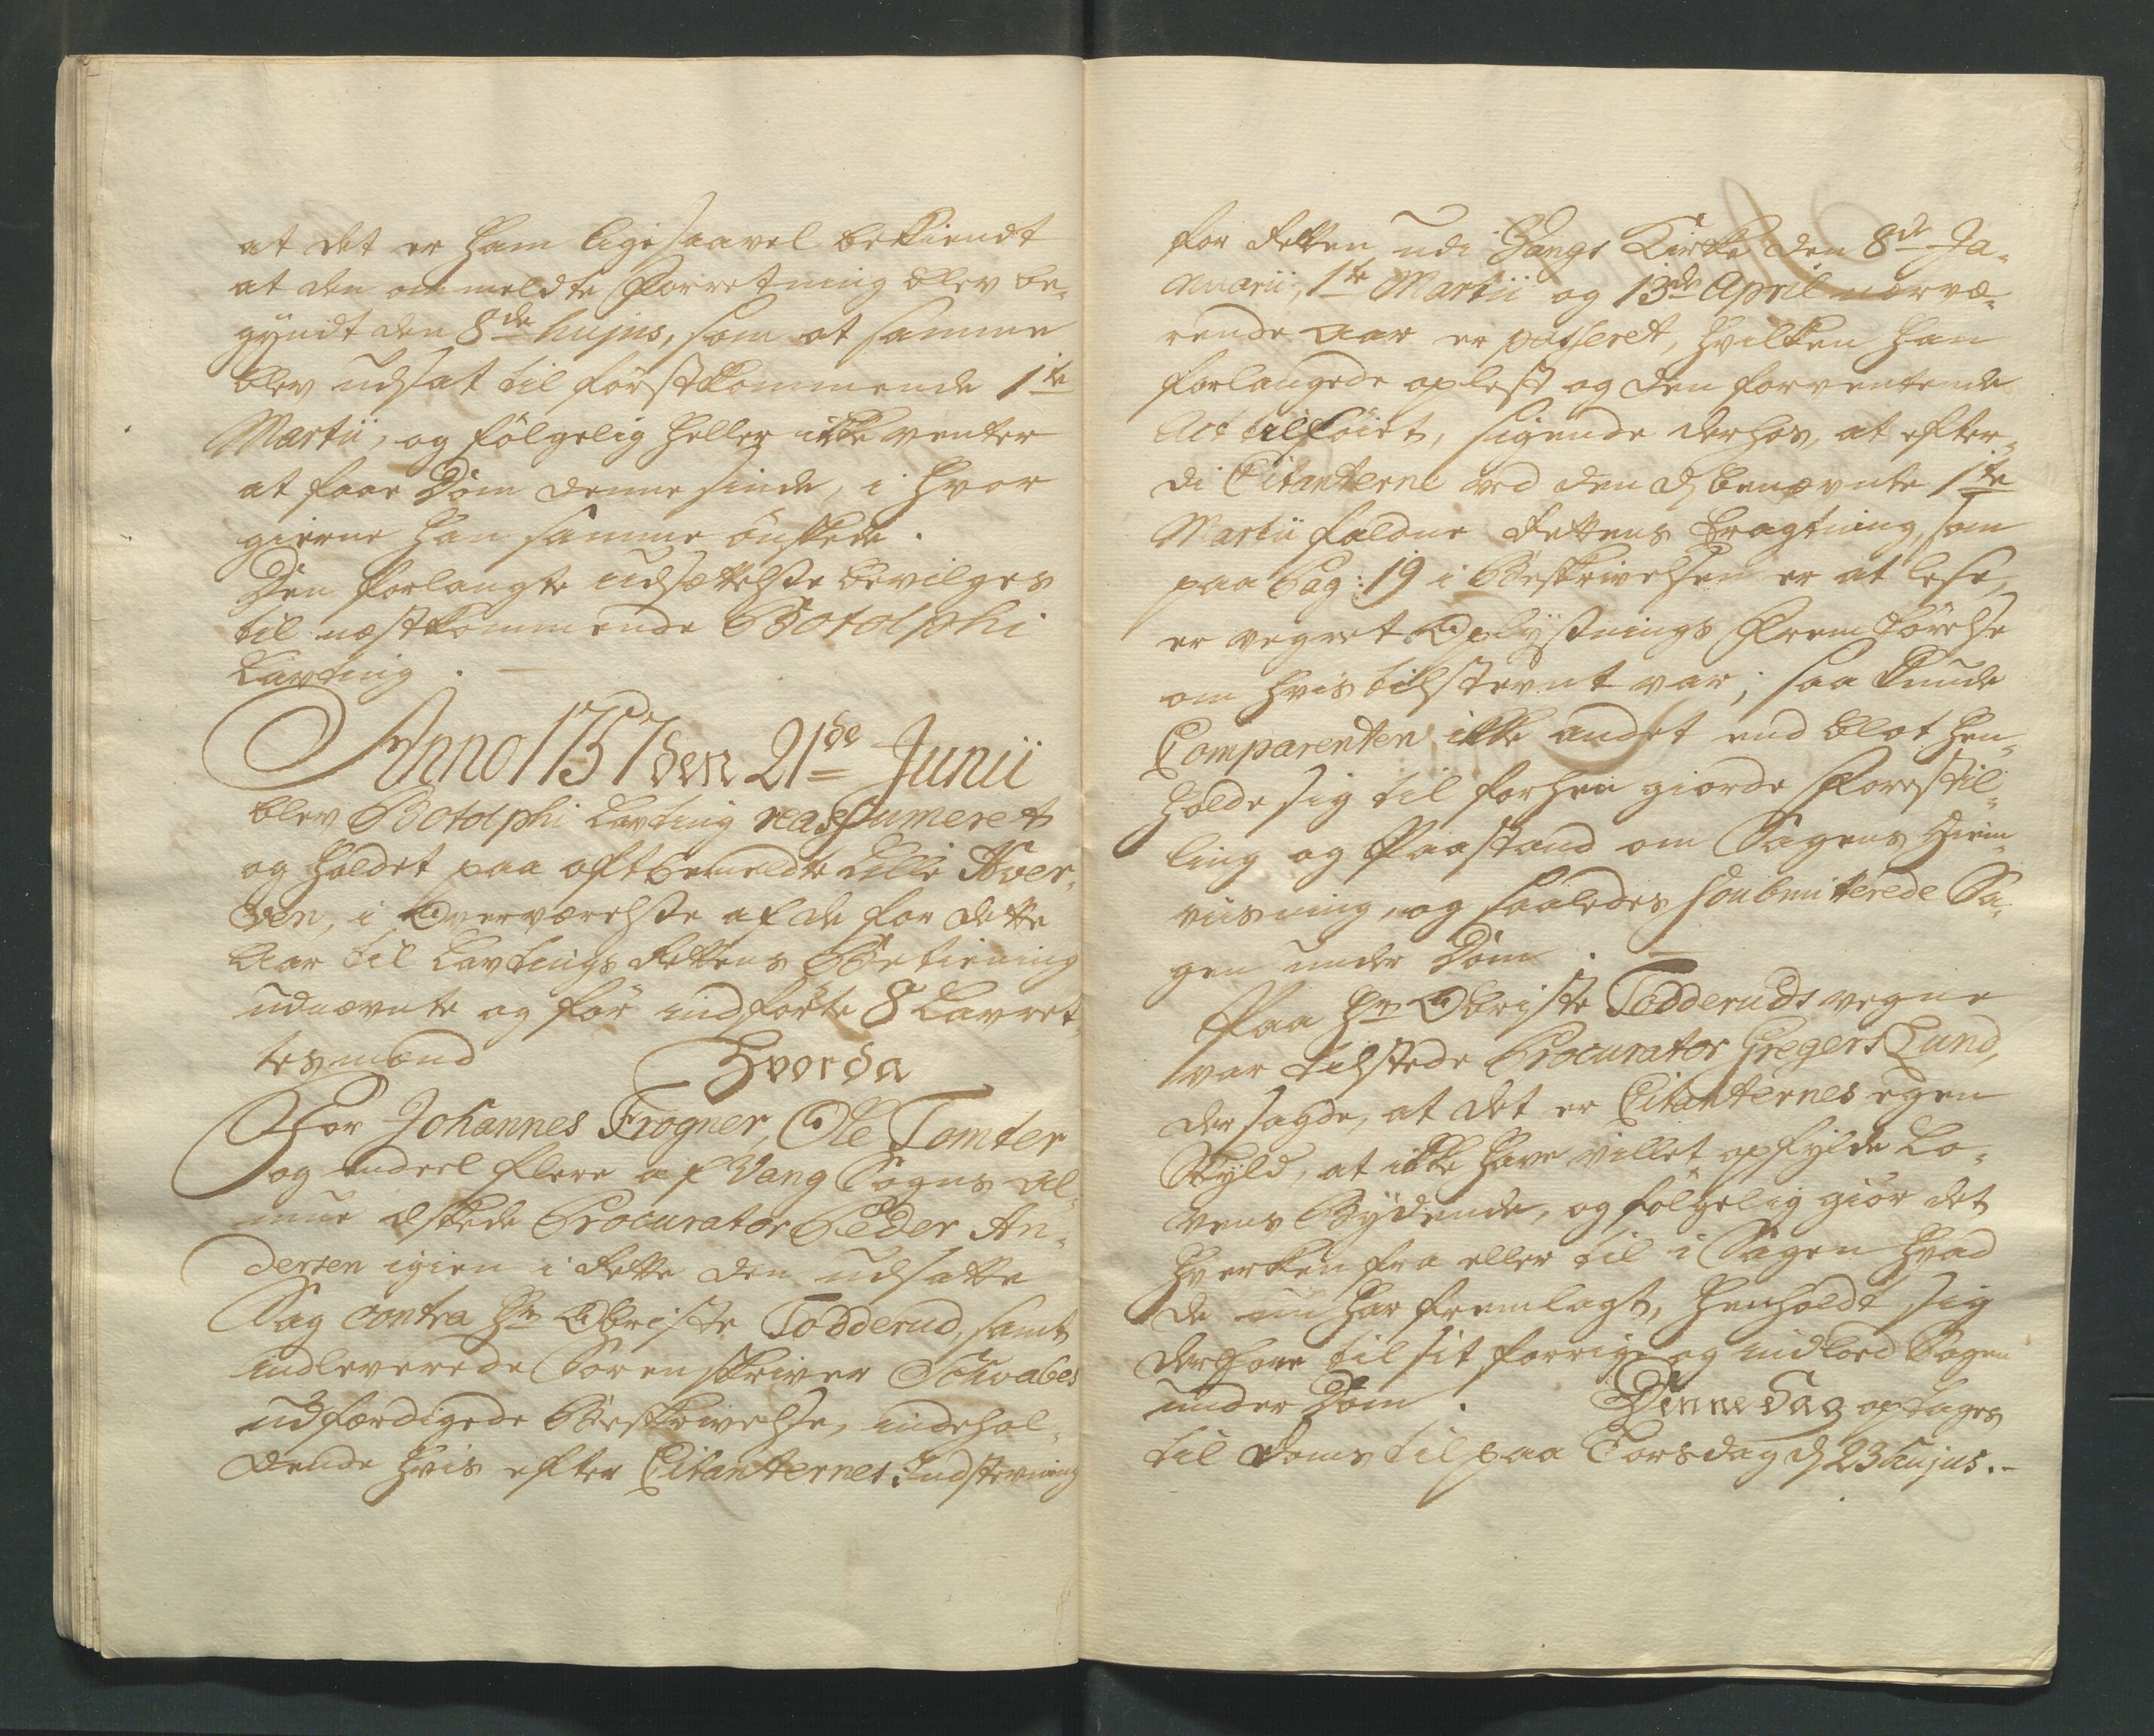 at det er ham ligesaavel bekiendt
at den ommeldte Forretning blev be-
gyndt den 8de hujus, som at samme
blev udsat til förstkommende 1te
Martii, og fölgelig heller ikke venter
at faae Dom denne sinde, i hvor
gierne han samme önskede.
Den forlangte Udsættelse bevilges
til næstkommende Botolphi
Lavting.
Anno 1757 den 21de Junii
blev Botolphi Lavting reassumeret
og holdet paa oftbemeldte Lille Hver-
ven, i Overværelse af de for dette
Aar til Lavtings Rettens Betiening
udnævnte og för indförte 8 Lavret-
tesmænd Hvorda
For Johannes Frogner, Ole Tomter
og endeel flere af Vang Sogns Al-
mue æskede Procurator Peder An-
dersen igien i Rette den udsatte
Sag contra Hr Obriste Todderud, samt
indleverede Sorenskriver Schvabes
udfærdigede Beskrivelse, indehol-
dende hvis efter Citanternes Indstevning
for Retten udi Vangs Kirke den 8de Ja-
nuarii, 1te Martii og 13de April nærvæ-
rende Aar er passeret, hvilken han
forlangede oplest og den forventende
Act tilföiet, sigende derhos, at efter-
di Citanterne ved den d benævnte 1te
Martii faldne Rettens Eragtning, som
paa Pag: 19 i Beskrivelsen er at lese,
er vegret Oplysnings Fremförelse
om hvis tilstevnt var; saa kunde
Comparenten ikke andet end blot hen-
holde sig til forhen giorde Forestil-
ling og Paastand om Sagens Hiem-
viisning, og saaledes soubmiterede Sa-
gen under Dom.
Paa Hr Obriste Todderuds vegne
var tilstede Procurator Gregers Lund,
der sagde, at det er Citanternes egen
Skyld, at ikke have villet opfylde Lo-
vens Bydende, og fölgelig giör det
hverken fra eller til i Sagen hvad
de nu har fremlagt, henholdt sig
derfore til sit forrige og indlod Sagen
under Dom. Denne Sag optages
til Doms til paa Torsdag d 23 hujus.